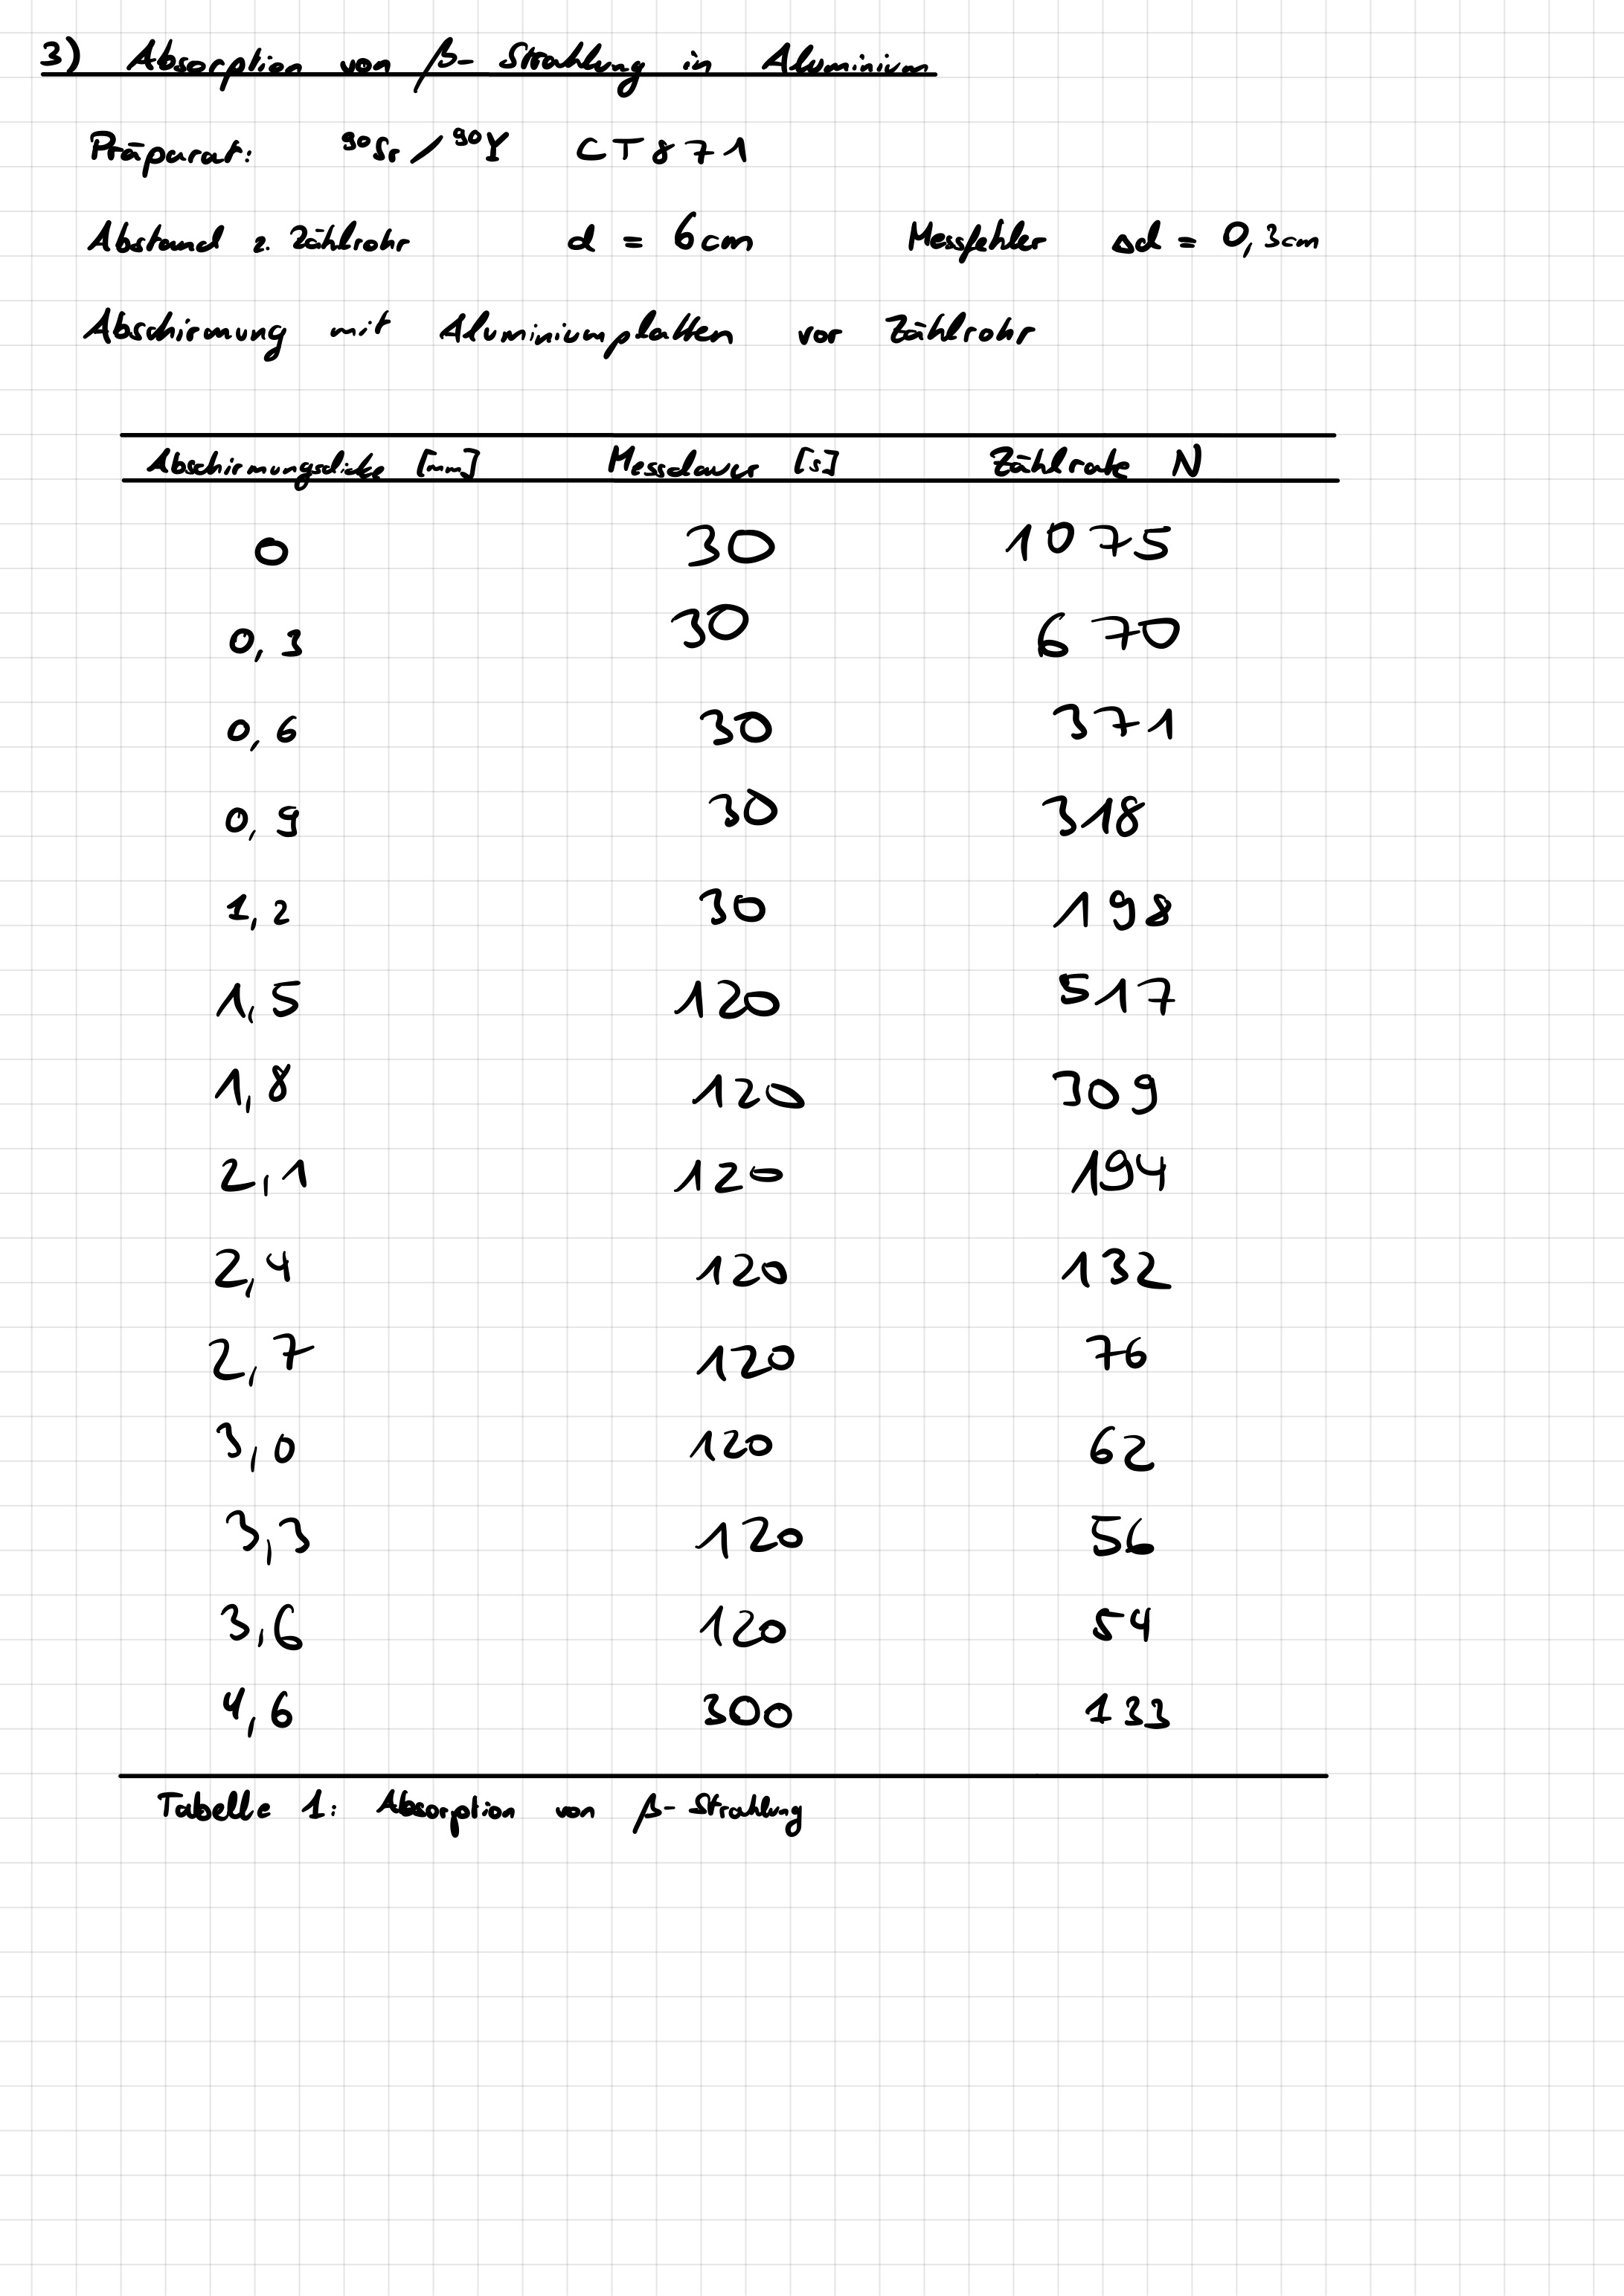 3) Absorption von β- Strahlung in Aluminium
Präparat: ⁹⁰Sr / ⁹⁰Y CT871
Abstand z. Zählrohr d = 6cm Messfehler Δd = 0,3cm
Abschirmung mit Aluminiumplatten vor Zählrohr
Abschirmungsdicke [mm] Messdauer [s] Zählrate N
0 30 1075
0,3 30 670
0,6 30 371
0,9 30 318
1,2 30 198
1,5 120 517
1,8 120 309
2,1 120 194
2,4 120 132
2,7 120 76
3,0 120 62
3,3 120 56
3,6 120 54
4,6 300 133
Tabelle 1: Absorption von β- Strahlung